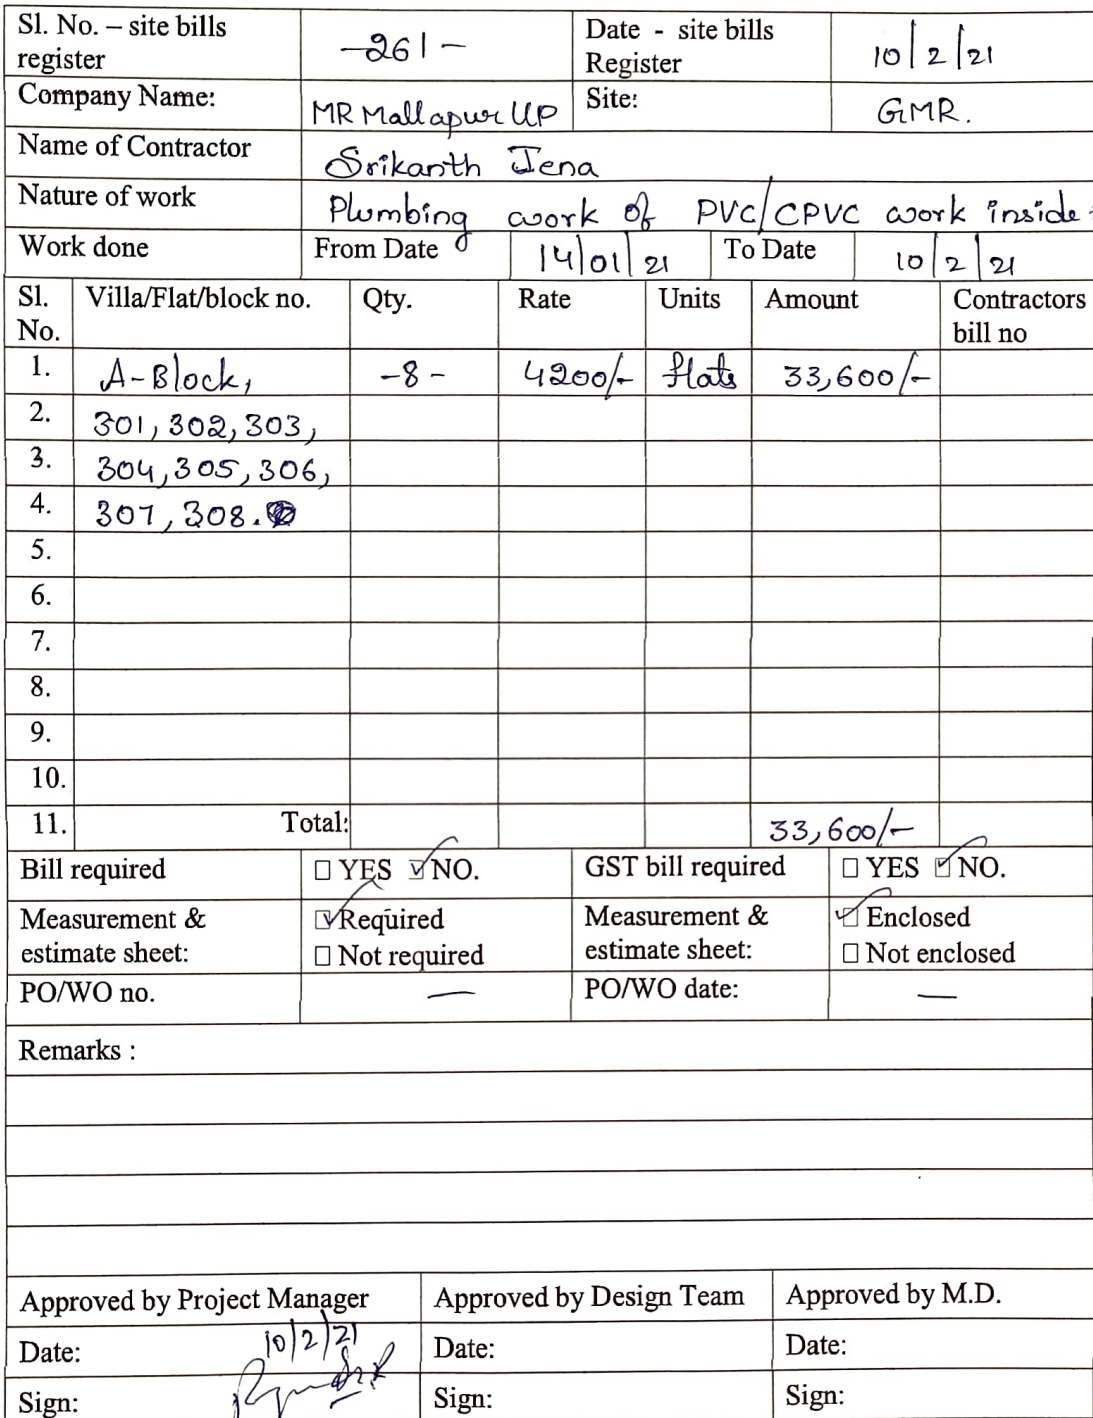 Sl. No. – site bills register -261- Date - site bills Register 10/2/21
Company Name: MR Mallapur UP Site: GMR.
Name of Contractor Srikanth Jena
Nature of work Plumbing work of PVC/CPVC work inside
Work done From Date 14/01/21 To Date 10/2/21
Sl. No. Villa/Flat/block no. Qty. Rate Units Amount Contractors bill no
1. A-Block, -8- 4200/- flats 33,600/-
2. 301, 302, 303,
3. 304, 305, 306,
4. 307, 308.
5.
6.
7.
8.
9.
10.
11. Total: 33,600/-
Bill required □ YES ☑ NO. GST bill required □ YES ☑ NO.
Measurement & estimate sheet: ☑ Required □ Not required Measurement & estimate sheet: ☑ Enclosed □ Not enclosed
PO/WO no. — PO/WO date: —
Remarks :
Approved by Project Manager Approved by Design Team Approved by M.D.
Date: 10/2/21 Date: Date:
Sign: Sign: Sign: